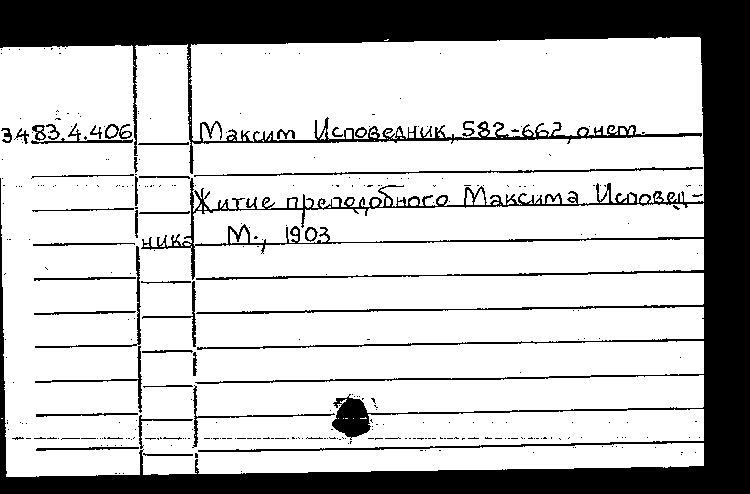 3483.4.406 Максим Исповедник, 582-662, о нем.
Житие преподобного Максима Исповед-
ника М., 1903